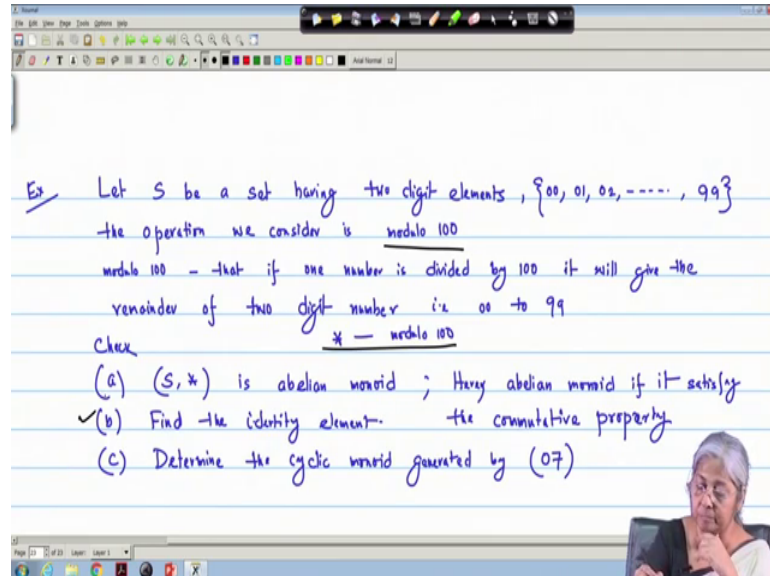 Xournal
File Edit View Page Tools Options Help
Arial Normal 12
Ex Let S be a set having two digit elements, {00, 01, 02, -----, 99}
the operation we consider is modulo 100
modulo 100 - that if one number is divided by 100 it will give the
remainder of two digit number i.e 00 to 99
Check * — modulo 100
(a) (S, *) is abelian monoid ; abelian monoid if it satisfy
the commutative property
✓(b) Find the identity element.
(c) Determine the cyclic monoid generated by (07)
Page 23 of 23 Layer: Layer 1